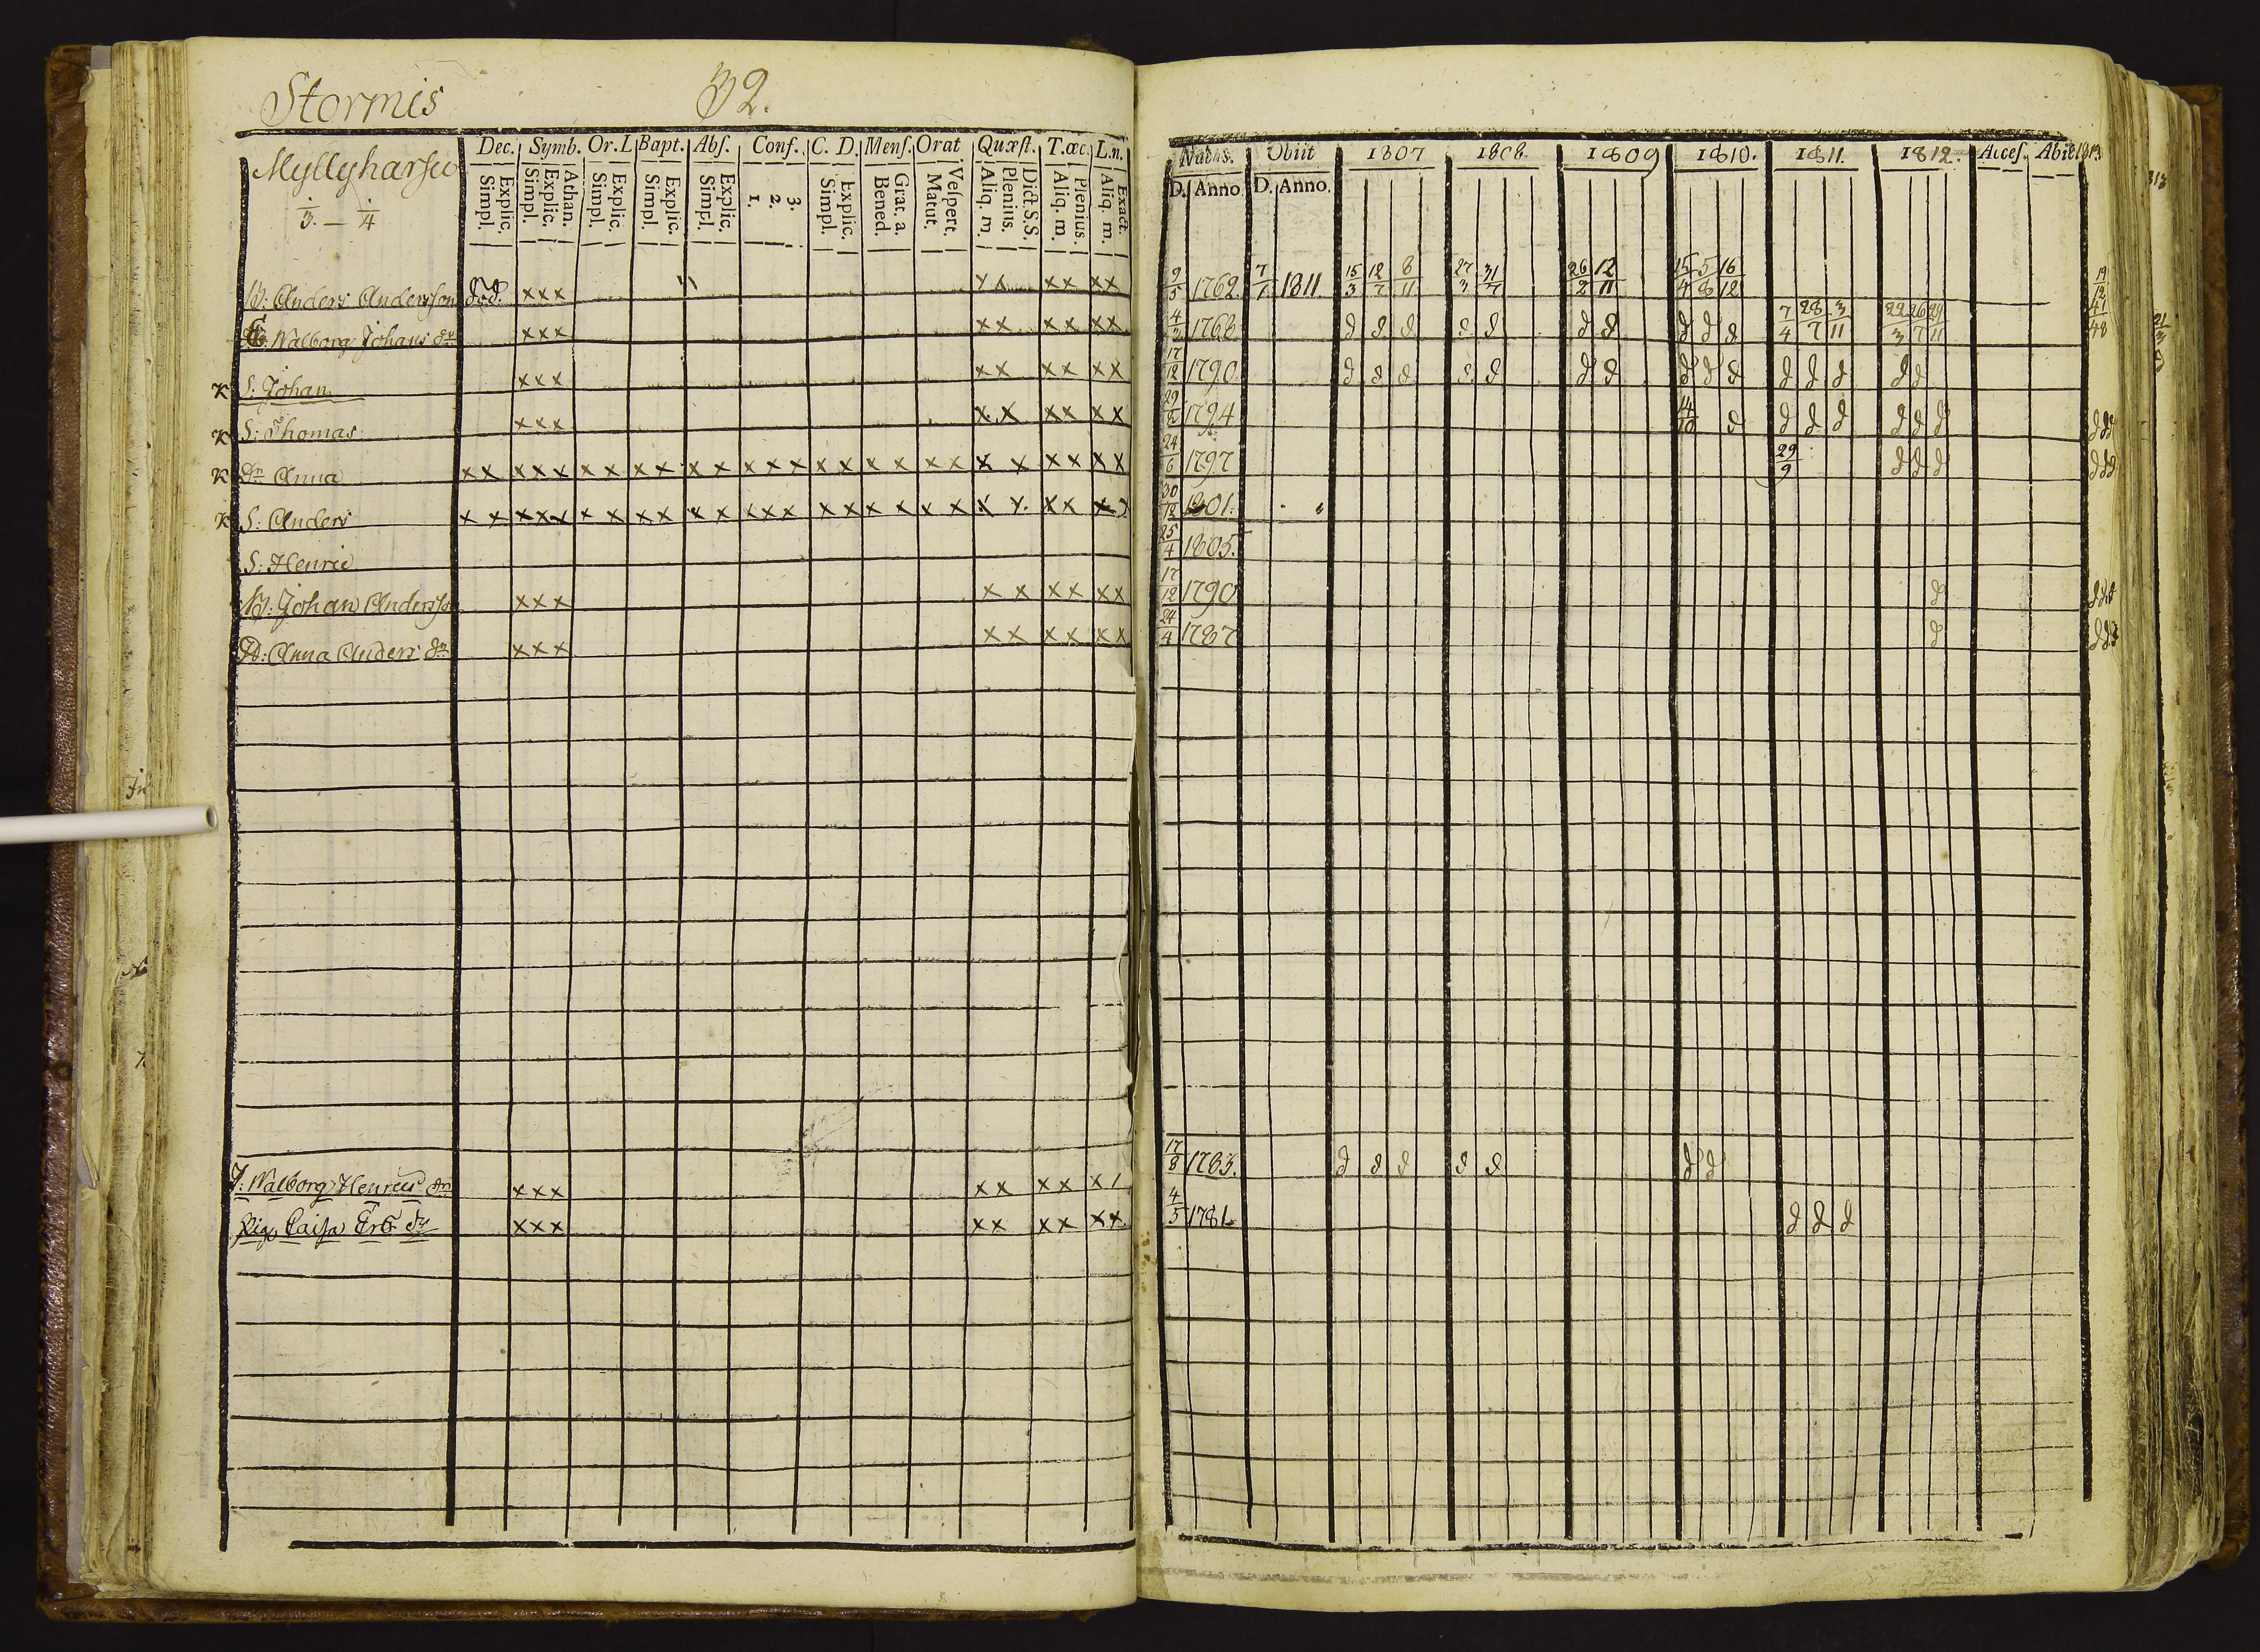 Stormis 32.
Dec. Symb. Or. L Bapt. Abſ. Conf. C. D. Menſ. Orat Quæſt. T. œc. L. n. Natus. Obiit 1807 1808. 1809 1810. 1811. 1812. Acceſ. Abiit 1813
Myllyharju
1/3. — 1/4
Simpl. Explic. Simpl. Explic. Athan. Simpl. Explic. Simpl. Explic. Simpl. Explic. 1. 2. 3. Simpl. Explic. Bened. Grat. a. Matut. Veſpert. Aliq. m. Plenius. Dict. S. S. Aliq. m. Plenius. Aliq. m. Exact. D. Anno. D. Anno.
B: Anders Andersson död. xxx xx xx xx 9/5 1762. 7/1 1811 15/3 12/7 8/11 27/3 31/7 26/2 12/11 15/4 5/8 16/12
Walborg Johans dr xxx xx xx xx 4/3 1768. d d d d d d d d d d 7/4 28/7 3/11 22/3 26/7 29/11
S: Johan xxx xx xx xx 17/12 1790. d d d d d d d d d d d d d d d
S: Thomas xxx xx xx xx 1794 14/10 d d d d d d d d d d
dr Anna xx xxx xx xx xx xxx xx xx xx xx xx xx 24/6 1797 29/9 d d d d d d
S: Anders xx xxx xx xx xx xxx xx xx xx xx xx xx 30/12 1801.
S: Henric 25/4 1805.
B: Johan Andersson xxx xx xx xx 17/12 1790 d d d d
H: Anna Anders dr xxx xx xx xx 24/4 1787 d d d d
J: Walborg Henrics dr xxx xx xx x 17/8 1763. d d d d d d d
Pig. Caisa Er. dr xxx xx xx xx 4/5 1781. d d d